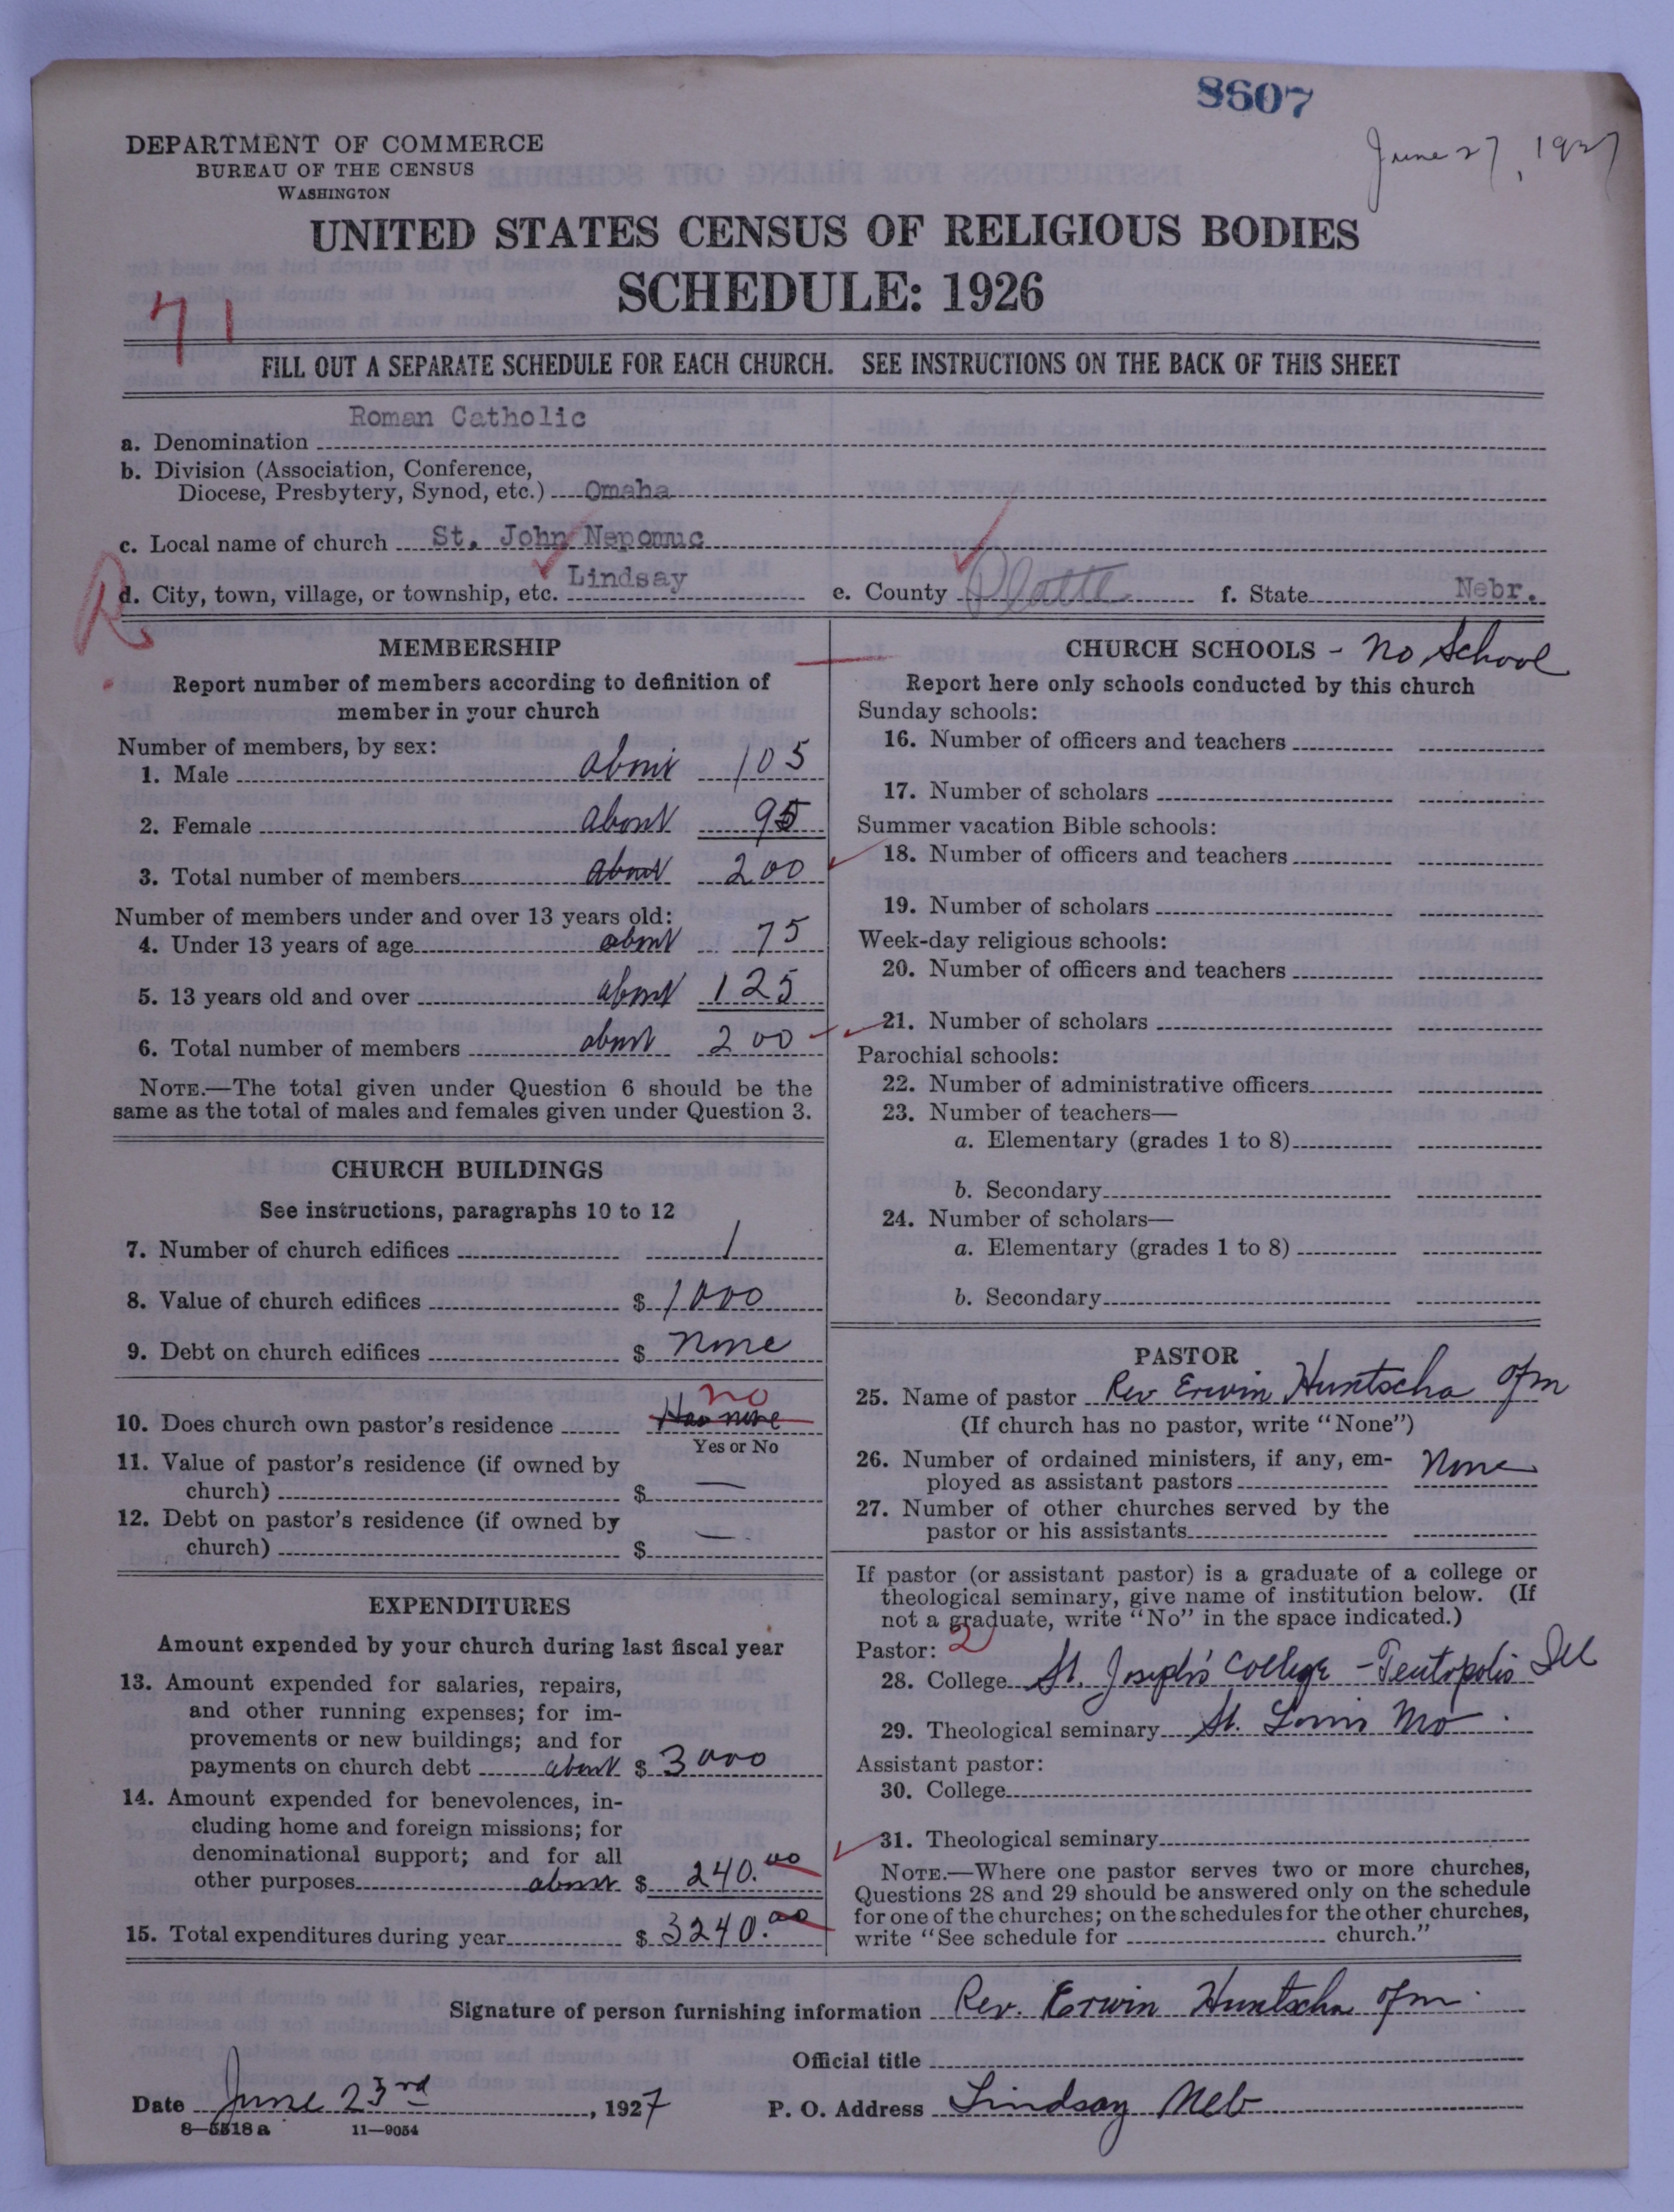 8607
June 27, 1927
DEPARTMENT OF COMMERCE
BUREAU OF THE CENSUS
WASHINGTON
UNITED STATES CENSUS OF RELIGIOUS BODIES
SCHEDULE: 1926
71
FILL OUT A SEPARATE SCHEDULE FOR EACH CHURCH. SEE INSTRUCTIONS ON THE BACK OF THIS SHEET
a. Denomination Roman Catholic
b. Division (Association, Conference,
Diocese, Presbytery, Synod, etc.) Omaha
c. Local name of church St. John Nepomuc
R
d. City, town, village, or township, etc. Lindsay e. County Platte f. State Nebr.
MEMBERSHIP
Report number of members according to definition of
member in your church
Number of members, by sex:
1. Male about 105
2. Female about 95
3. Total number of members about 200
Number of members under and over 13 years old:
4. Under 13 years of age about 75
5. 13 years old and over about 125
6. Total number of members about 200
NOTE.—The total given under Question 6 should be the
same as the total of males and females given under Question 3.
CHURCH BUILDINGS
See instructions, paragraphs 10 to 12
7. Number of church edifices 1
8. Value of church edifices $ 1000
9. Debt on church edifices $ none
no
10. Does church own pastor's residence Has none
Yes or No
11. Value of pastor's residence (if owned by
church) $ —
12. Debt on pastor's residence (if owned by
church) $ —
EXPENDITURES
Amount expended by your church during last fiscal year
13. Amount expended for salaries, repairs,
and other running expenses; for im-
provements or new buildings; and for
payments on church debt about $ 3000
14. Amount expended for benevolences, in-
cluding home and foreign missions; for
denominational support; and for all
other purposes about $ 240.00
15. Total expenditures during year $ 3240.00
CHURCH SCHOOLS - No School
Report here only schools conducted by this church
Sunday schools:
16. Number of officers and teachers
17. Number of scholars
Summer vacation Bible schools:
18. Number of officers and teachers
19. Number of scholars
Week-day religious schools:
20. Number of officers and teachers
21. Number of scholars
Parochial schools:
22. Number of administrative officers
23. Number of teachers—
a. Elementary (grades 1 to 8)
b. Secondary
24. Number of scholars—
a. Elementary (grades 1 to 8)
b. Secondary
PASTOR
25. Name of pastor Rev Erwin Huntscha ofm
(If church has no pastor, write "None")
26. Number of ordained ministers, if any, em-
ployed as assistant pastors None
27. Number of other churches served by the
pastor or his assistants
If pastor (or assistant pastor) is a graduate of a college or
theological seminary, give name of institution below. (If
not a graduate, write "No" in the space indicated.)
Pastor: 2
28. College St. Joseph's College - Teutopolis Ill
29. Theological seminary St. Louis Mo.
Assistant pastor:
30. College
31. Theological seminary
NOTE.—Where one pastor serves two or more churches,
Questions 28 and 29 should be answered only on the schedule
for one of the churches; on the schedules for the other churches,
write "See schedule for church."
Signature of person furnishing information Rev. Erwin Huntscha ofm.
Official title
Date June 23rd, 1927 P. O. Address Lindsay Neb
8—5518 a 11—9054